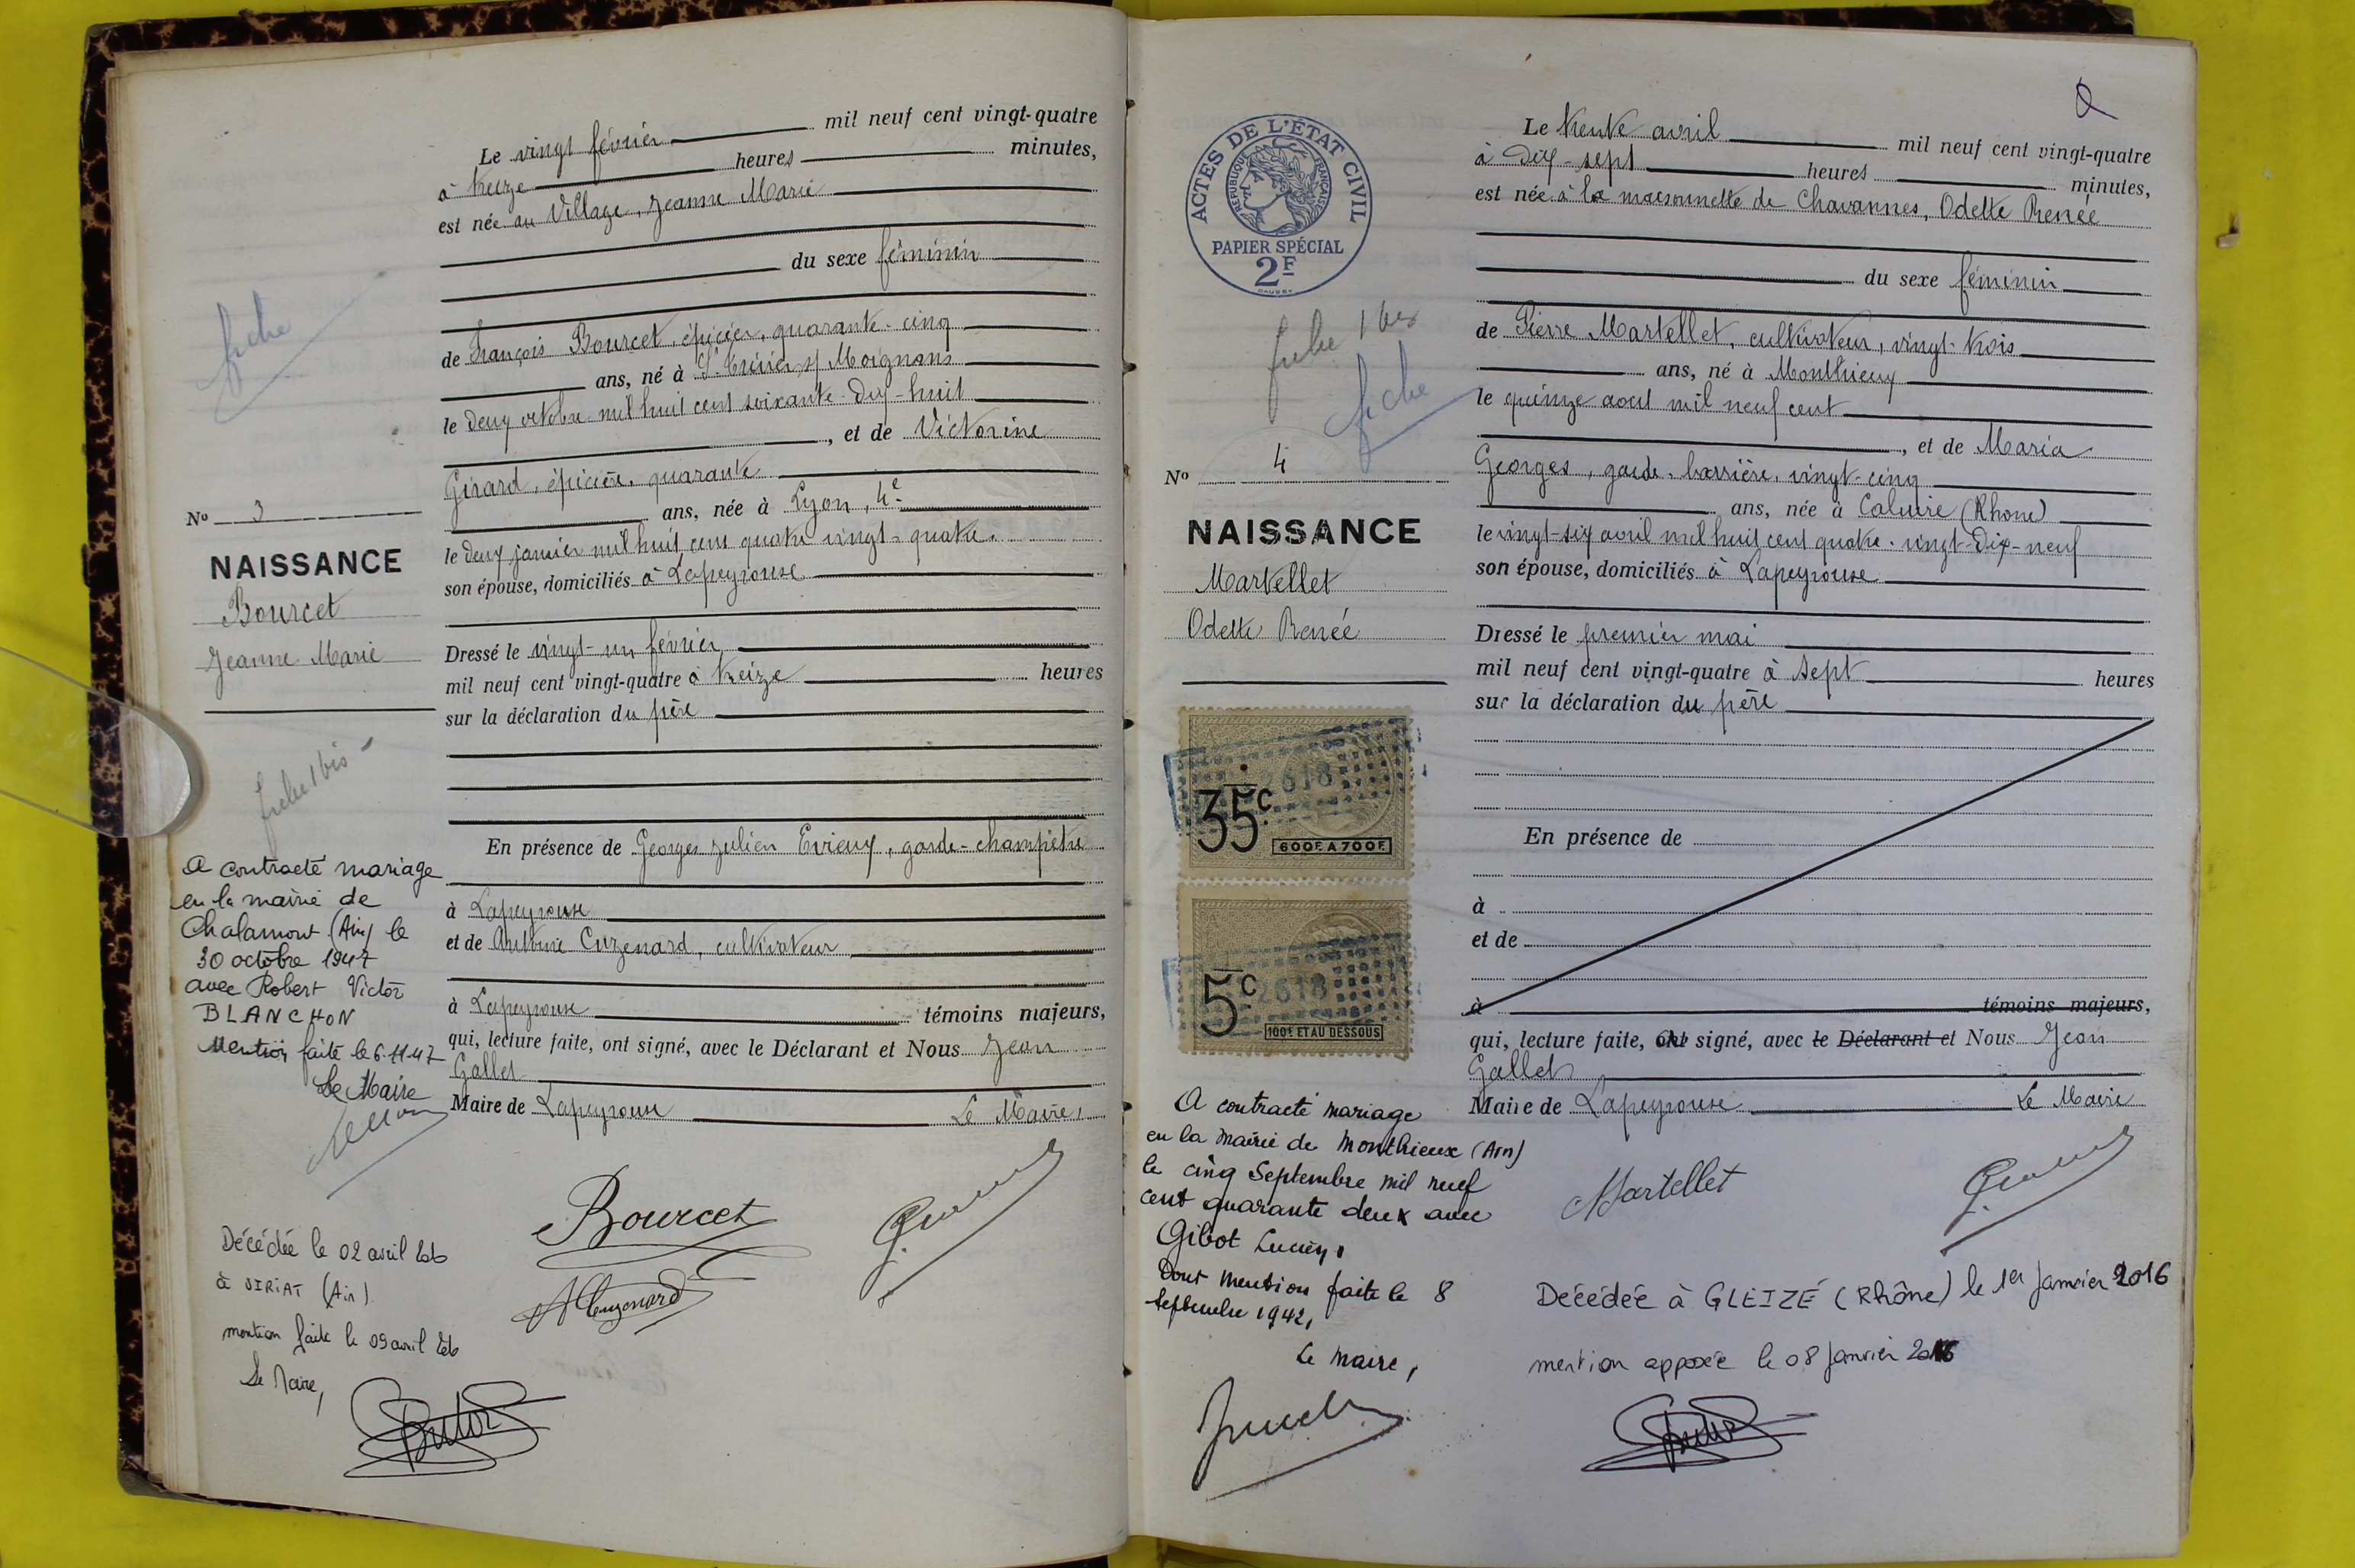 Le vingt février mil neuf cent vingt-quatre
à treize heures minutes,
est née au Village, Jeanne Marie
du sexe féminin
de François Bourcet, épicier, quarante-cinq
ans, né à St Trivier s/ Moignans
le deux octobre mil huit cent soixante-dix-huit
, et de Victorine
Girard, épicière, quarante
ans, née à Lyon, 4e
le deux janvier mil huit cent quatre vingt-quatre.
son épouse, domiciliés à Lapeyrouse
Dressé le vingt-un février
mil neuf cent vingt-quatre à treize heures
sur la déclaration du père
En présence de Georges Julien Evieux, garde-champêtre
à Lapeyrouse
et de Antoine Cuzenard, cultivateur
à Lapeyrouse témoins majeurs,
qui, lecture faite, ont signé, avec le Déclarant et Nous Jean
Gallet
Maire de Lapeyrouse Le Maire,
Bourcet
ACuzenard
fiche
No 3
NAISSANCE
Bourcet
Jeanne Marie
fiche 1 bis
A contracté mariage
en la mairie de
Chalamont (Ain) le
30 octobre 1947
avec Robert Victor
BLANCHON
Mention faite le 6-11-47
Le Maire
Décédée le 02 avril
à VIRIAT (Ain)
mention faite le 09 avril
Le Maire,
ACTES DE L'ÉTAT CIVIL
RÉPUBLIQUE FRANÇAISE
PAPIER SPÉCIAL
2F
fiche 1 bis
fiche
No 4
NAISSANCE
Martellet
Odette Renée
2618
35c
600F. A 700F.
2618
5c
100F. ET AU DESSOUS
A contracté mariage
en la mairie de Monthieux (Ain)
le cinq Septembre mil neuf
cent quarante deux avec
Gibot Lucien,
Dont mention faite le 8
septembre 1942,
Le Maire,
Le trente avril mil neuf cent vingt-quatre
à dix-sept heures minutes,
est née à la maisonnette de Chavannes, Odette Renée
du sexe féminin
de Pierre Martellet, cultivateur, vingt-trois
ans, né à Monthieux
le quinze aout mil neuf cent
, et de Maria
Georges, garde-barrière, vingt-cinq
ans, née à Caluire (Rhone)
le vingt-six avril mil huit cent quatre-vingt-dix-neuf
son épouse, domiciliés à Lapeyrouse
Dressé le premier mai
mil neuf cent vingt-quatre à sept heures
sur la déclaration du père
En présence de
à
et de
à témoins majeurs,
qui, lecture faite, signé, avec le Déclarant et Nous Jean
Gallet
Maire de Lapeyrouse Le Maire
Martellet
Décédée à GLEIZÉ (Rhône) le 1er Janvier 2016
mention apposée le 08 Janvier 2016